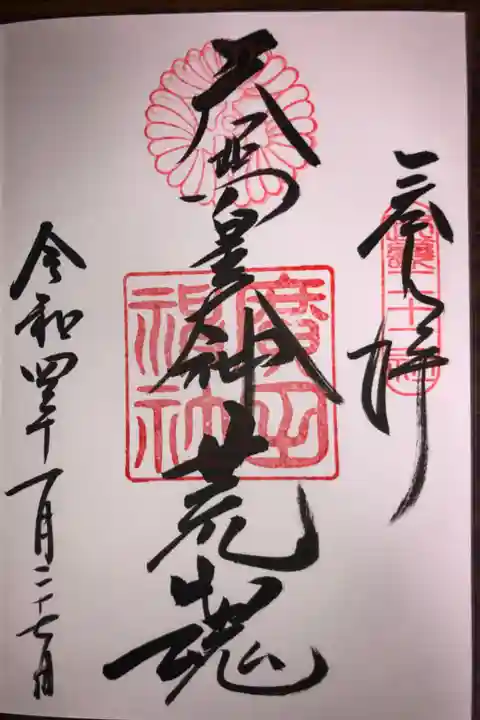 奉拝
天照皇神荒魂
廣田神社
令和四年一月二十七日